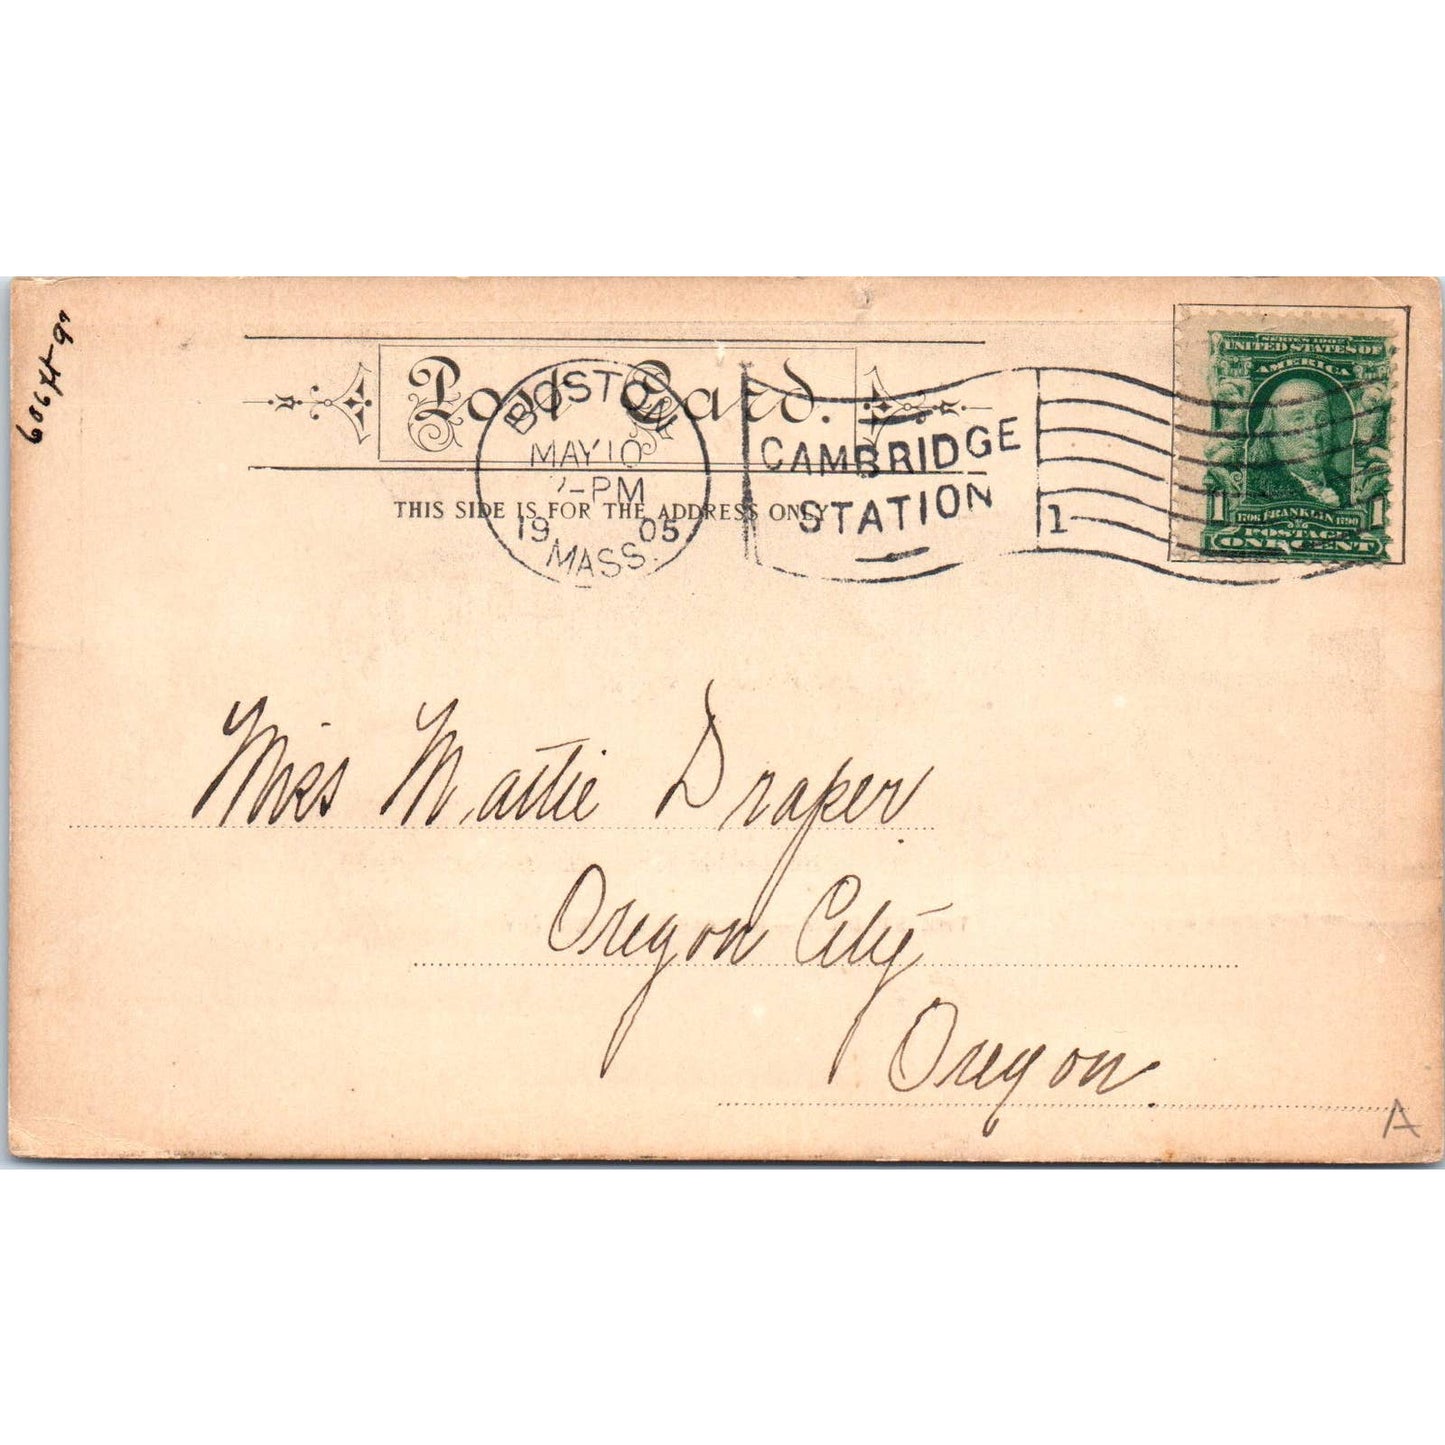 Post Card.
THIS SIDE IS FOR THE ADDRESS ONLY
BOSTON
MAY 10
-PM
19 05
MASS.
CAMBRIDGE
STATION
1
UNITED STATES OF
AMERICA
1 1706 FRANKLIN 1790 1
POSTAGE
ONE CENT
Miss Mattie Draper.
Oregon City
Oregon.
A